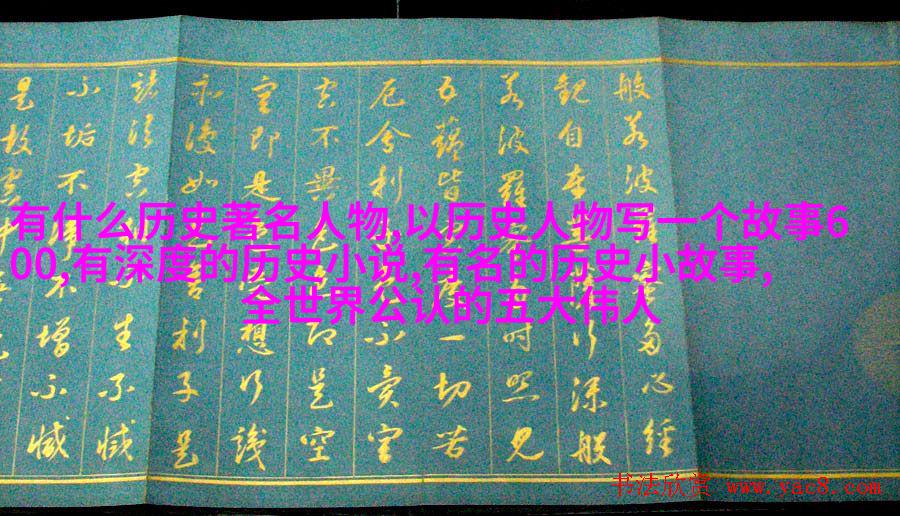 有什么历史著名人物,以历史人物写一个故事6
00,有深度的历史小说,有名的历史小故事,
全世界公认的五大伟人
般若波多心経
觀自在行深般
若波羅時照見
五蘊皆度一切苦
厄舍利不異空
空不異即是空
空即是想行識
亦復如舍利子是
諸法空生不滅
不垢不不增不減
是故空中
书法欣赏 www.yac8.com